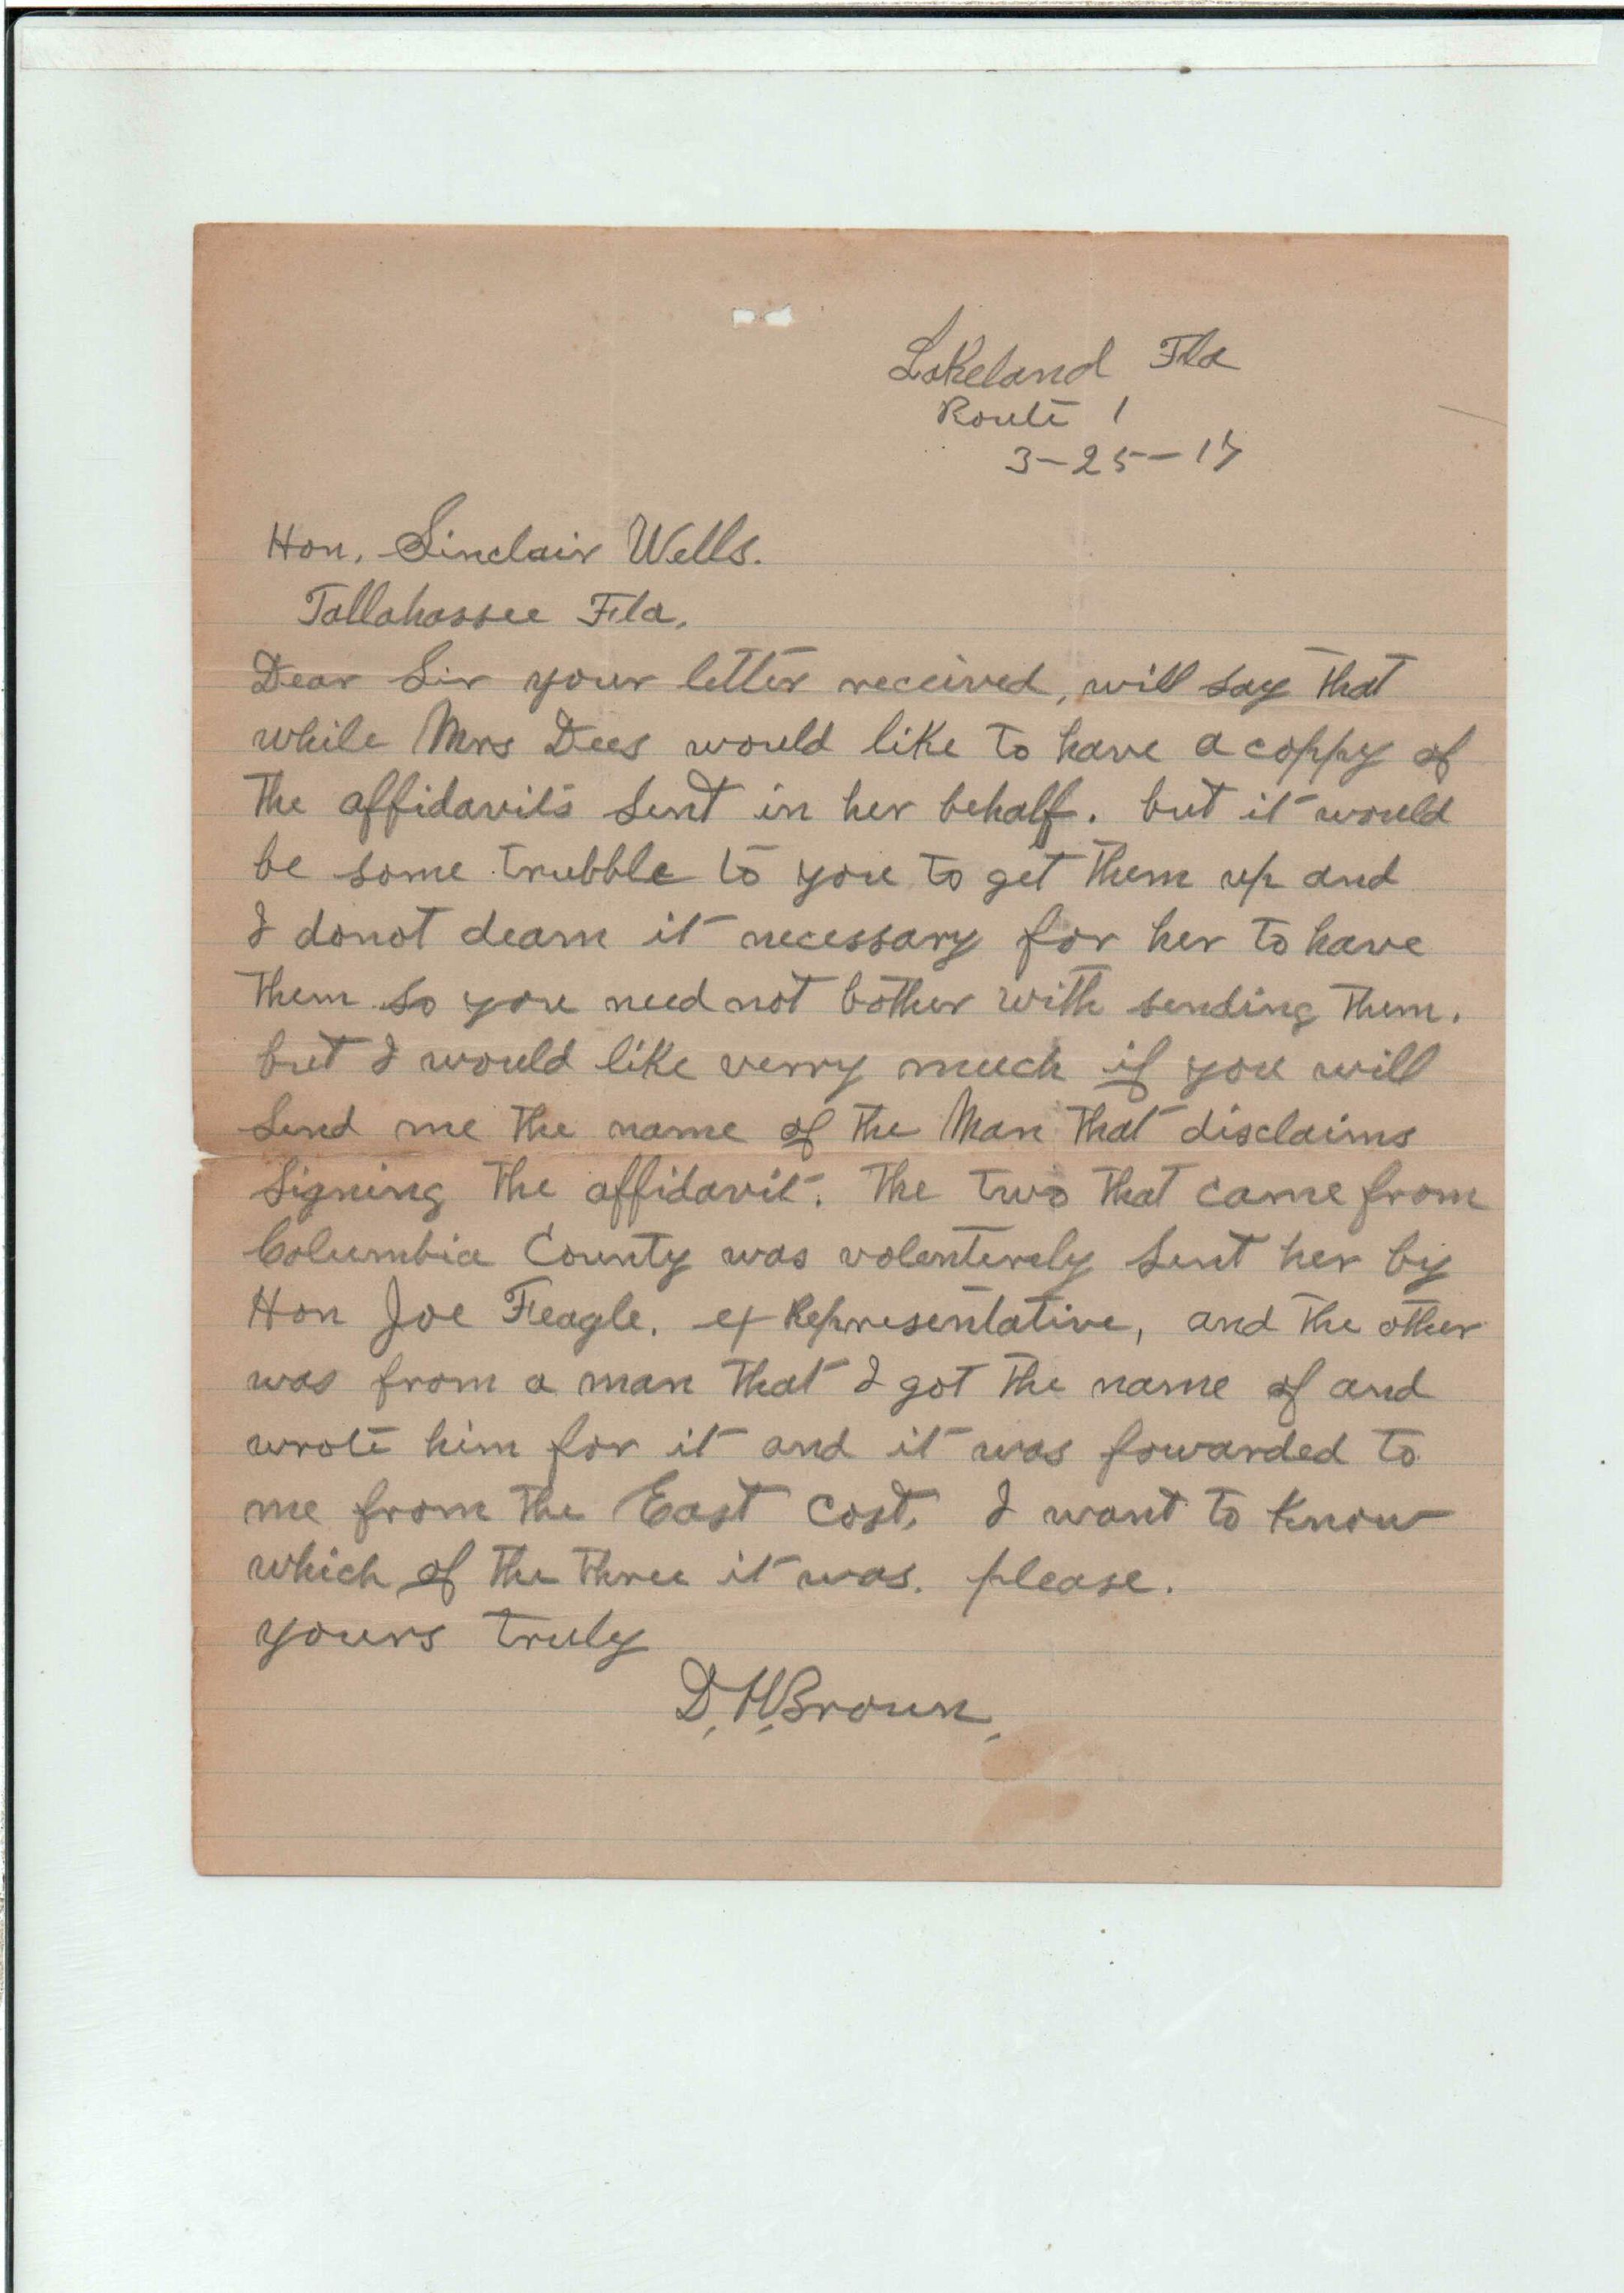 Lakeland Fla
Route 1
3-25-17
Hon. Sinclair Wells.
Tallahassee Fla.
Dear Sir your letter received, will say that
while Mrs Dees would like to have a coppy of
the affidavits sent in her behalf. but it would
be some trubble to you to get them up and
I donot deam it necessary for her to have
them so you need not bother with sending them.
but I would like verry much if you will
send me the name of the Man that disclaims
signing the affidavit. The two that came from
Columbia County was volenterely sent her by
Hon Joe Feagle. ex Representative, and the other
was from a man that I got the name of and
wrote him for it and it was fowarded to
me from the East Cost. I want to know
which of the three it was. please.
yours truly
D. H. Brown.